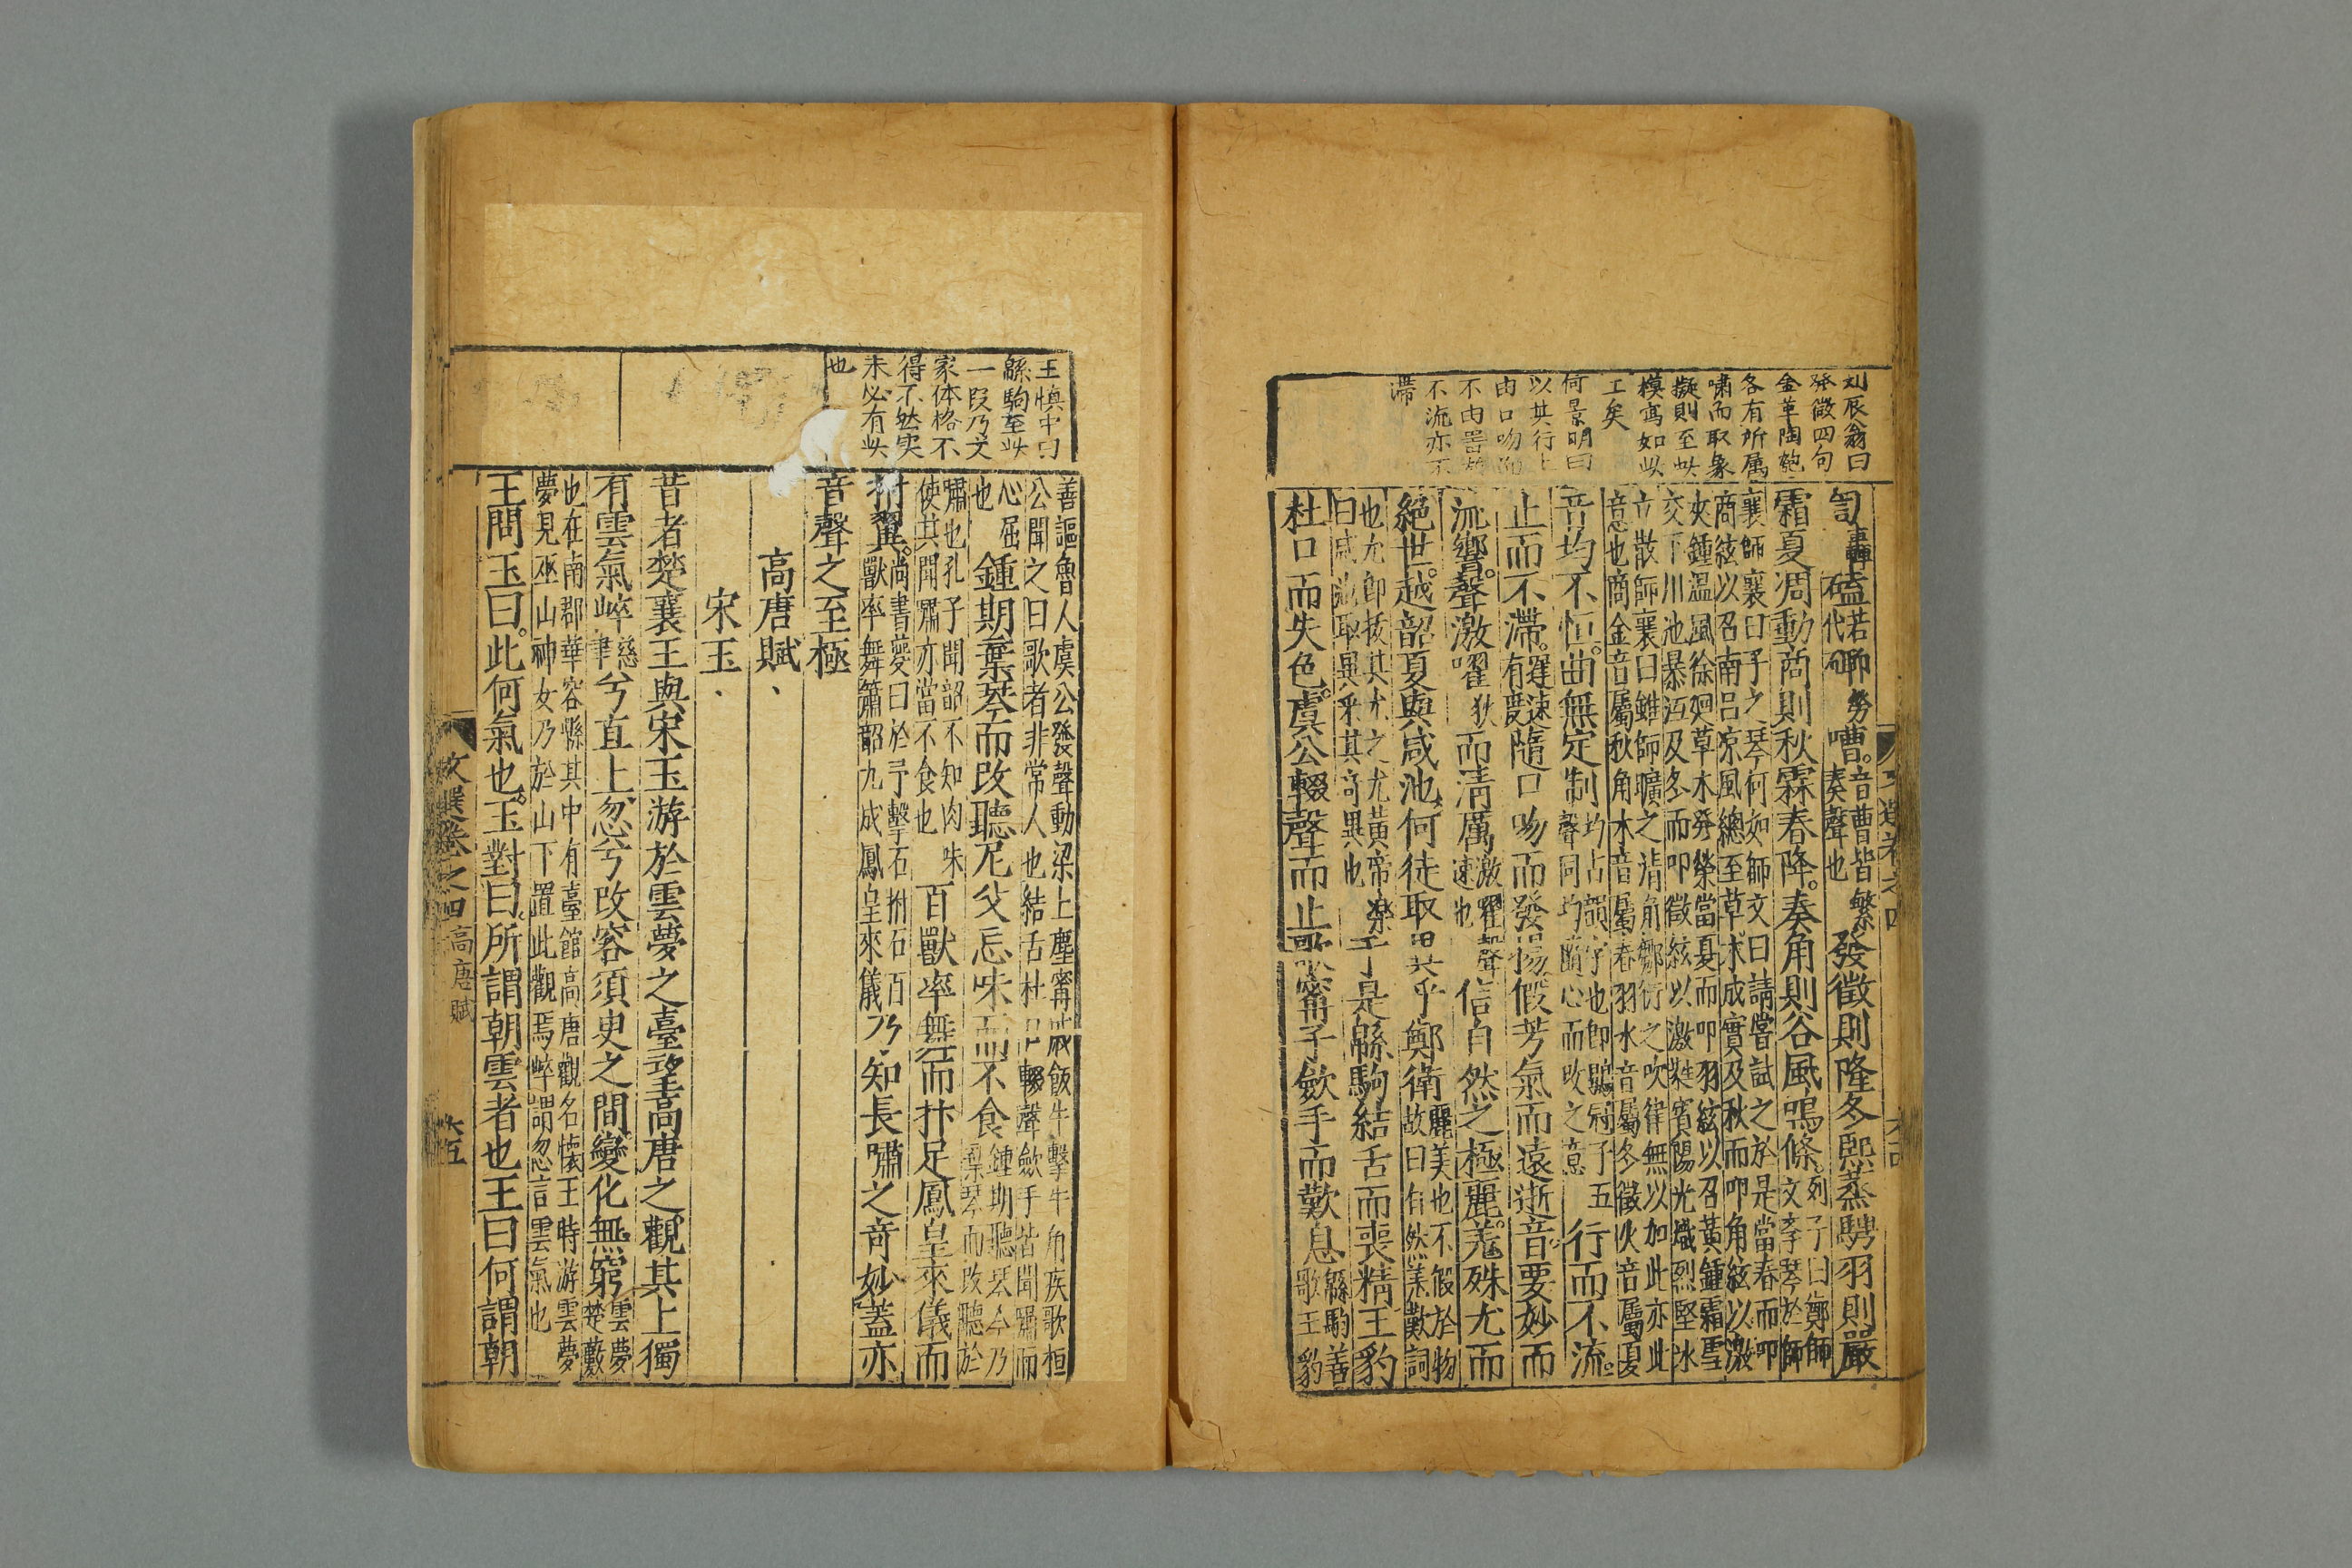 刘辰翁曰
發徵四句
金革陶匏
各有所属
嘯而取象
擬則至此
模寫如此
工矣
何景明曰
以其行上
由口吻而
不由噐故
不流亦不
滯
訇轟磕若代啣勞嘈音曹皆繁奏聲也發徵則隆冬熈蒸騁羽則嚴
霜夏凋動商則秋霖春降奏角則谷風鳴條列子曰鄭師文李琴於師
襄師襄曰子之琴何如師文曰請嘗試之於是當春而叩
商絃以召南呂凉風總至草木成實及秋而叩角絃以激
夾鍾温風徐廻草木發榮當夏而叩羽絃以召黃鍾霜雪
交下川池暴沍及冬而叩徵絃以激蕤賓陽光熾烈堅冰
立散師襄曰雖師曠之清角鄒衍之吹律無以加此亦此
意也商金音屬秋角木音屬春羽水音屬冬徵火音屬夏
音均不恒曲無定制均古韻字也即鶡冠子五聲同均齒心而改之意行而不流
止而不滯遲速有度隨口吻而發揚假芳氣而遠逝音要妙而
流響聲激嚁狄而清厲激嚁聲速也信自然之極麗羗殊尤而
絕世越韶夏與咸池何徒取異乎鄭衛麗美也不假於物故曰自然羡歎詞
也尤即拔其尤之尤黃帝樂曰咸池取異乎其奇異也于是緜駒結舌而喪精王豹
杜口而失色虞公輟聲而止歌甯子歛手而歎息緜駒善歌王豹
文選卷之四
王慎中曰
緜駒至此
一段乃文
家体格不
得不然实
未必有此
也
善謳魯人虞公發聲動梁上塵甯戚飯牛擊牛角疾歌桓
公聞之曰歌者非常人也結舌杜口輟聲歛手皆聞嘯而
心屈也鍾期棄琴而改聽尼父忘味而不食鍾期聽琴今乃棄琴而改聽於
嘯也孔子聞韶不知肉味使其聞嘯亦當不食也百獸率儛而抃足鳳皇來儀而
拊翼尚書夔曰於予擊石拊石百獸率舞簫韶九成鳳皇來儀乃知長嘯之奇妙蓋亦
音聲之至極
高唐賦
宋玉
昔者楚襄王與宋玉游於雲夢之臺望高唐之觀其上獨
有雲氣崪慈聿兮直上忽兮改容須臾之間變化無窮雲夢楚藪
也在南郡華容縣其中有臺館高唐觀名懷王時游雲夢
夢見巫山神女乃於山下置此觀焉崪謂忽言雲氣也
王問玉曰此何氣也玉對曰所謂朝雲者也王曰何謂朝
文選卷之四 高唐賦